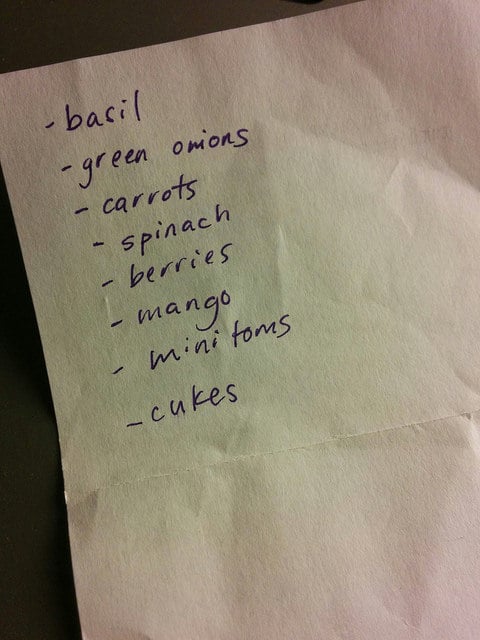 - basil
- green onions
- carrots
- spinach
- berries
- mango
- mini toms
- cukes